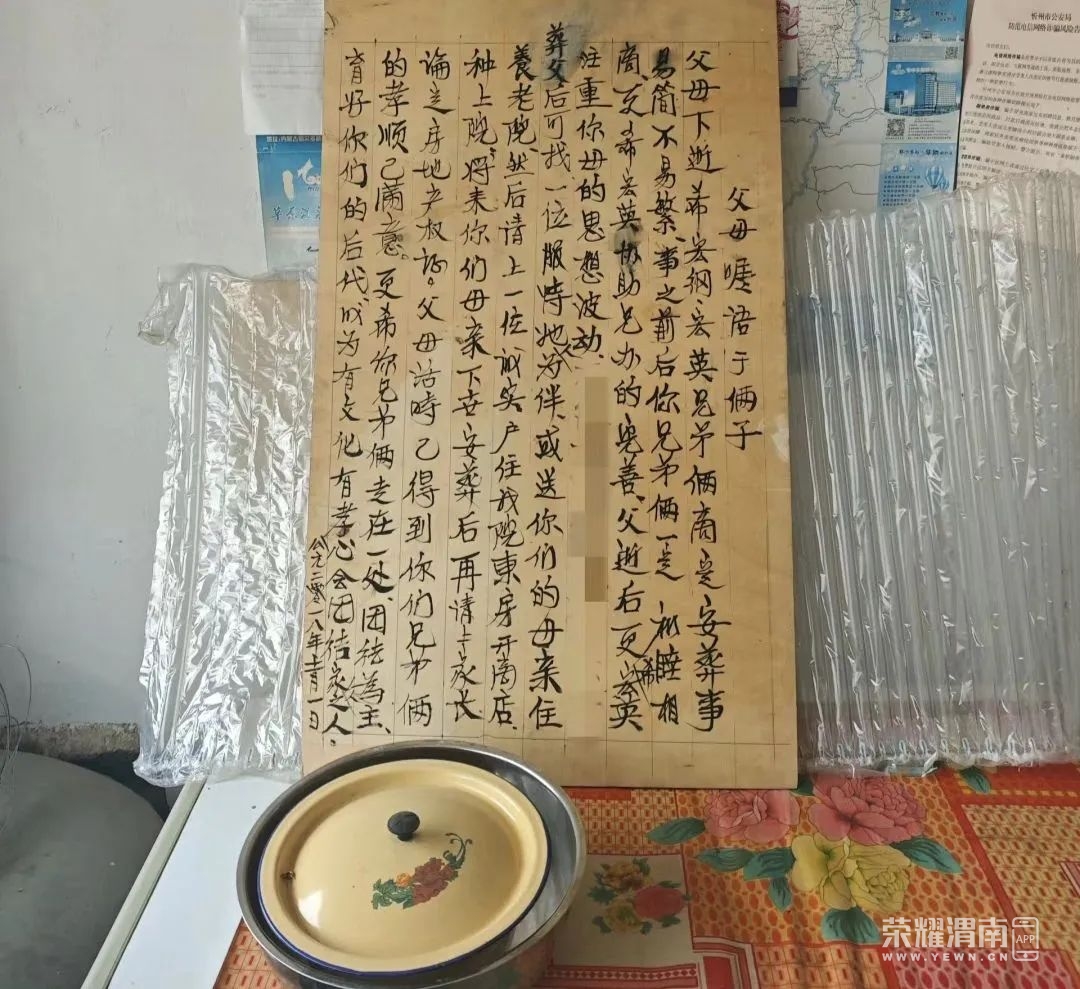 父母嘱语于俩子
父母下逝希宏纲宏英兄弟俩商定安葬事
易简不易繁、事之前后你兄弟俩一定和睦相
商、更希宏英协助兄办的完善、父逝后更希宏英
注重你母的思想波动、
葬父后可找一位服待她为伴、或送你们的母亲住
养老院、然后请上一位诚实户住我院東房开商店、
种上院、将来你们母亲下世安葬后再请上家长
论定房地产权认。父母活時已得到你们兄弟俩
的孝顺已满意。更希你兄弟俩走在一处、团结為主、
育好你们的后代、成为有文化有孝心会团结家之人、
公元二零一八年十一月一日
忻州市公安局
荣耀渭南
APP
WWW.YEWN.CN